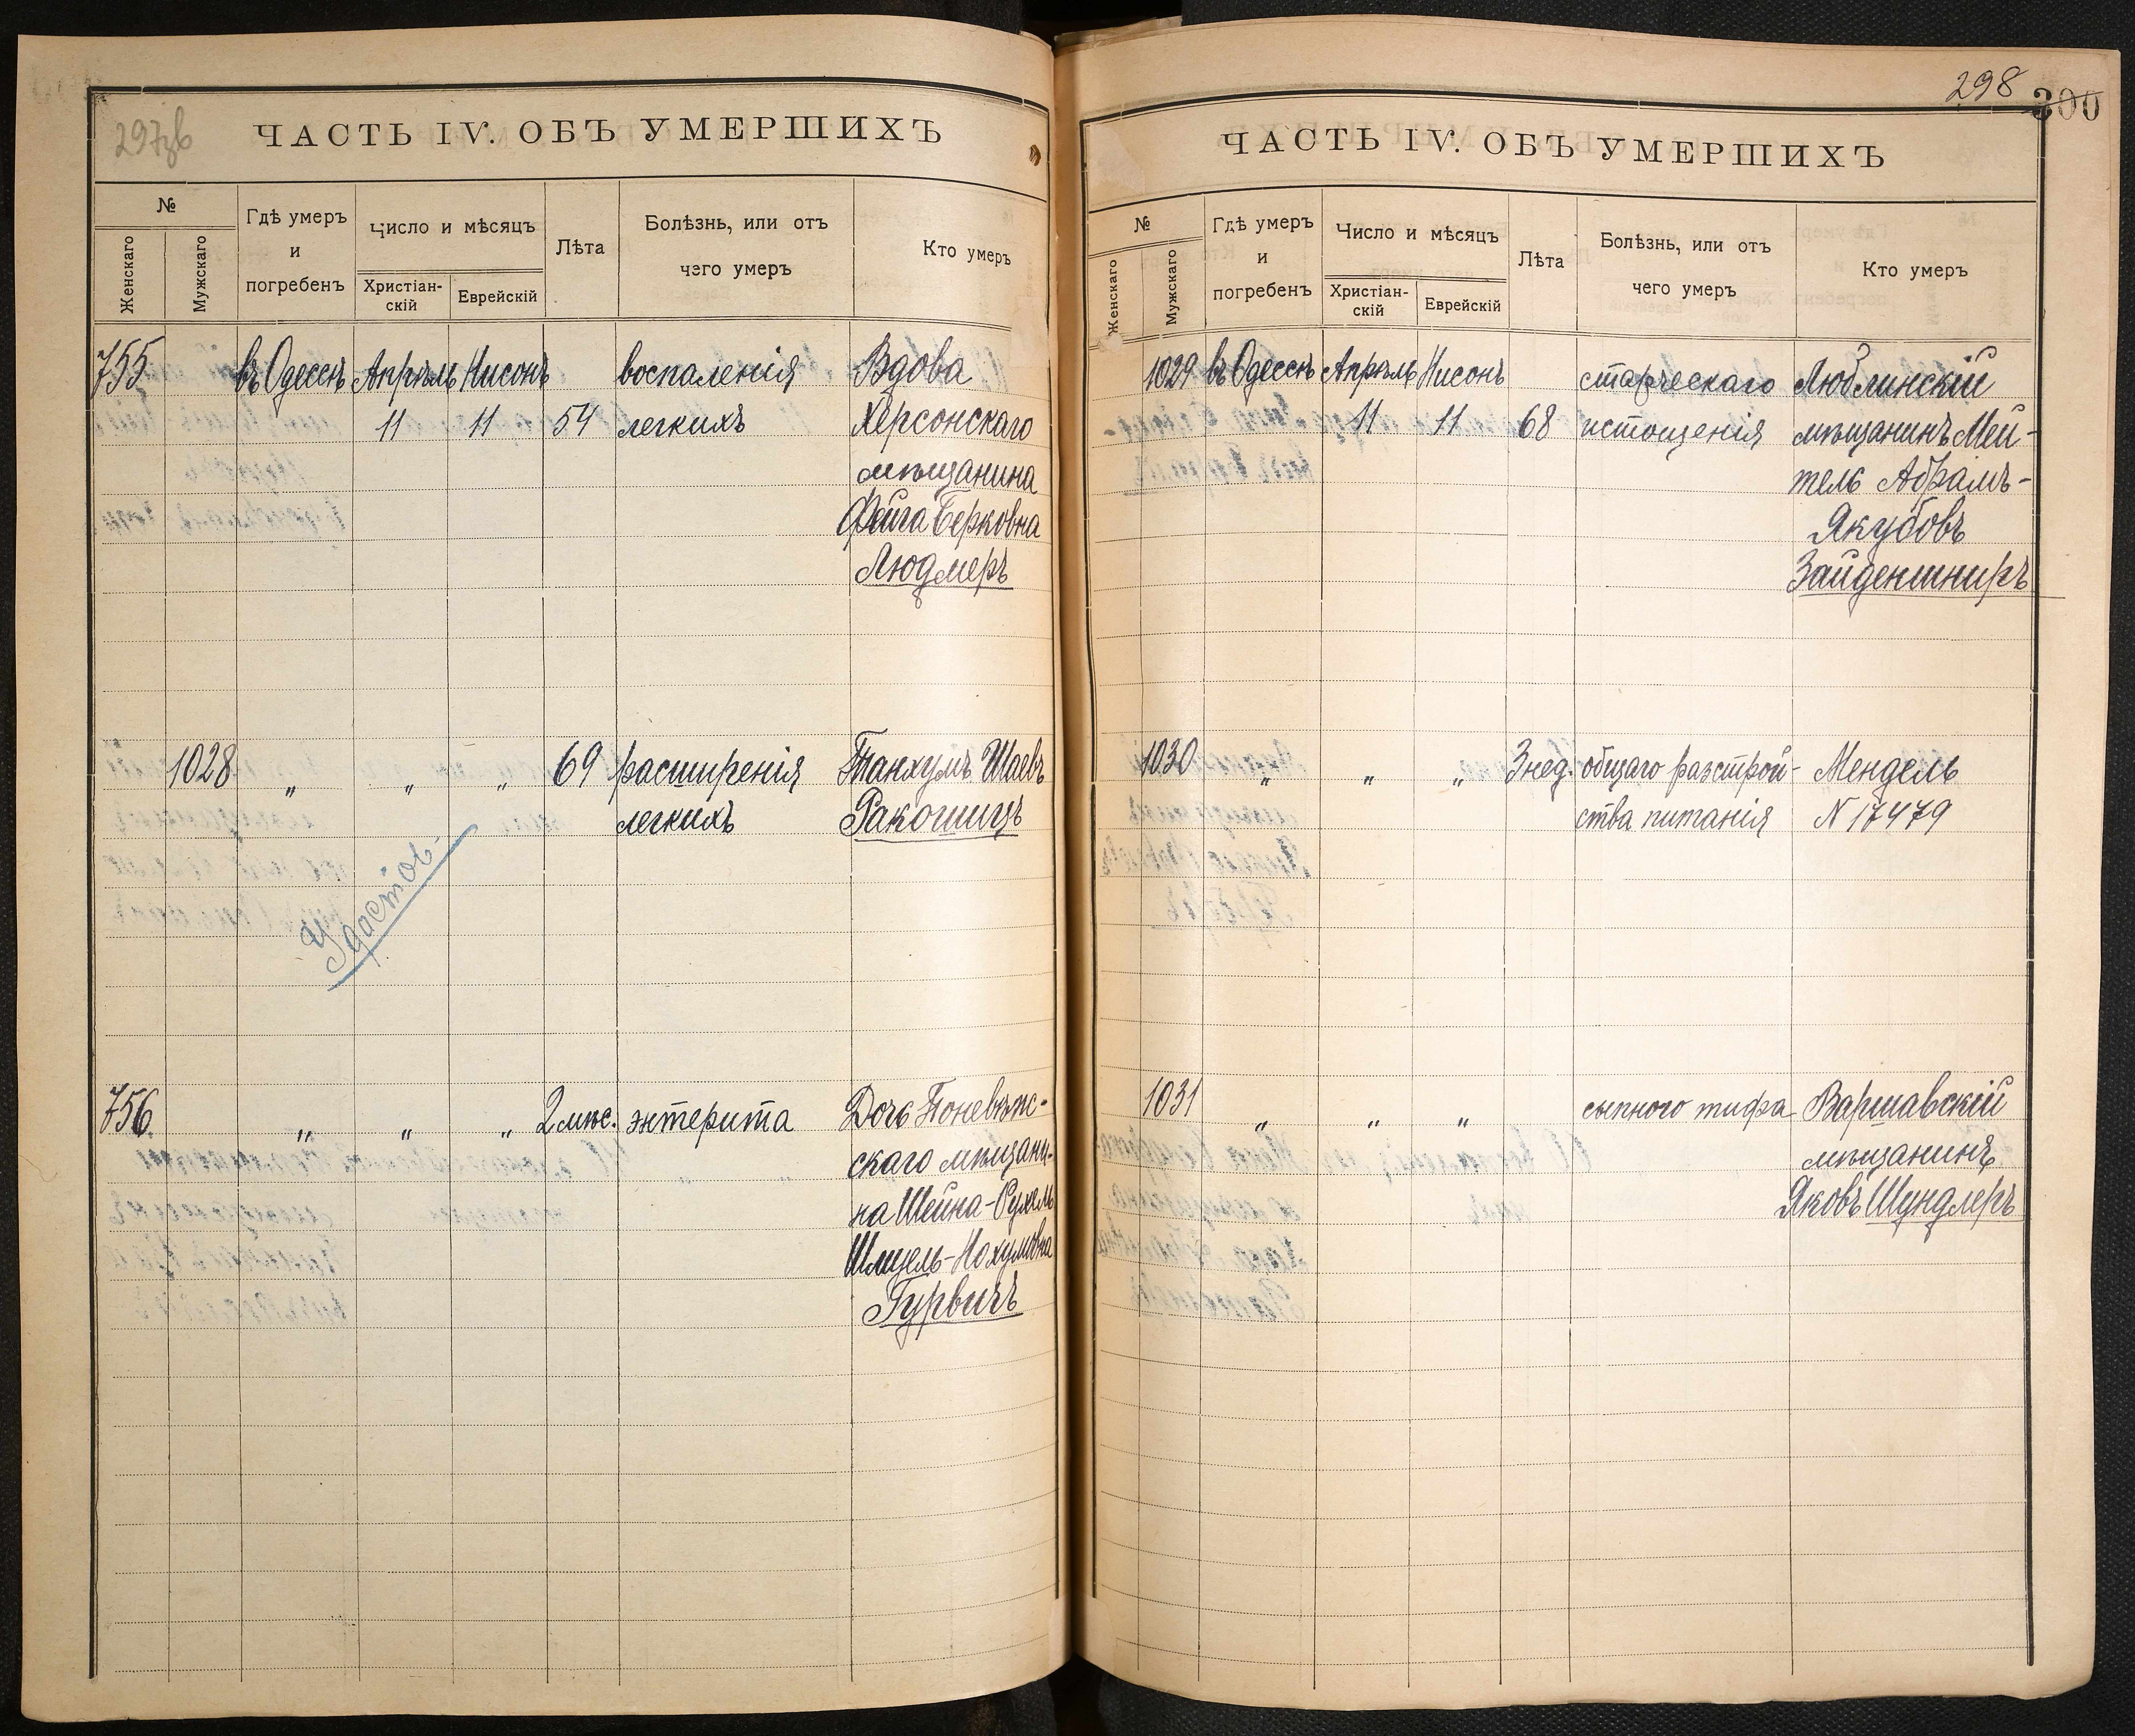 297зв
ЧАСТЬ IV. ОБЪ УМЕРШИХЪ
№
Женскаго
Мужскаго
Гдѣ умеръ
и
погребенъ
Число и мѣсяцъ
Христіан-
скій
Еврейскій
Лѣта
Болѣзнь, или отъ
чего умеръ
Кто умеръ
755 въ Одессѣ Апрѣль Нисонъ воспаленія Вдова
11 11 54 легкихъ Херсонскаго
мѣщанина
Фейга Берковна
Людмеръ
1028 „ „ „ 69 расширенія Танхумъ Шаевъ
легкихъ Ракошицъ
Удостов.
756 „ „ „ 2 мѣс. энтерита Дочь Поневѣж-
скаго мѣщани-
на Шейна-Рухель
Шмуель-Нохумовна
Гурвичъ
298
300
ЧАСТЬ IV. ОБЪ УМЕРШИХЪ
№
Женскаго
Мужскаго
Гдѣ умеръ
и
погребенъ
Число и мѣсяцъ
Христіан-
скій
Еврейскій
Лѣта
Болѣзнь, или отъ
чего умеръ
Кто умеръ
1029 въ Одессѣ Апрѣль Нисонъ старческаго Люблинскій
11 11 68 истощенія мѣщанинъ Мей-
тель Абрамъ-
Якубовъ
Зайденшниръ
1030 „ „ „ 3 нед. общаго разстрой- Мендель
ства питанія N 17479
1031 „ „ „ сыпного тифа Варшавскій
мѣщанинъ
Яковъ Шундлеръ